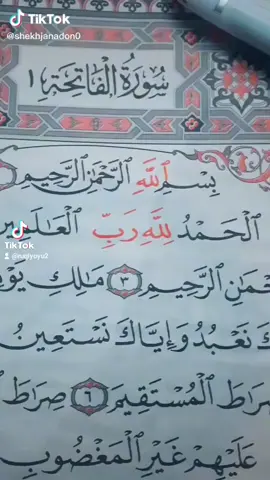 TikTok
@shekhjanadon0
سُورَةُ ٱلْفَاتِحَةِ ١
بِسْمِ ٱللَّهِ ٱلرَّحْمَٰنِ ٱلرَّحِيمِ
ٱلْحَمْدُ لِلَّهِ رَبِّ ٱلْعَالَمِين
TikTok
حْمَٰنِ ٱلرَّحِيمِ ٣ مَالِكِ يَوْ
كَ نَعْبُدُ وَإِيَّاكَ نَسْتَعِينُ
رَاطَ ٱلْمُسْتَقِيمَ ٦ صِرَاطَ
عَلَيْهِمْ غَيْرِ ٱلْمَغْضُوبِ